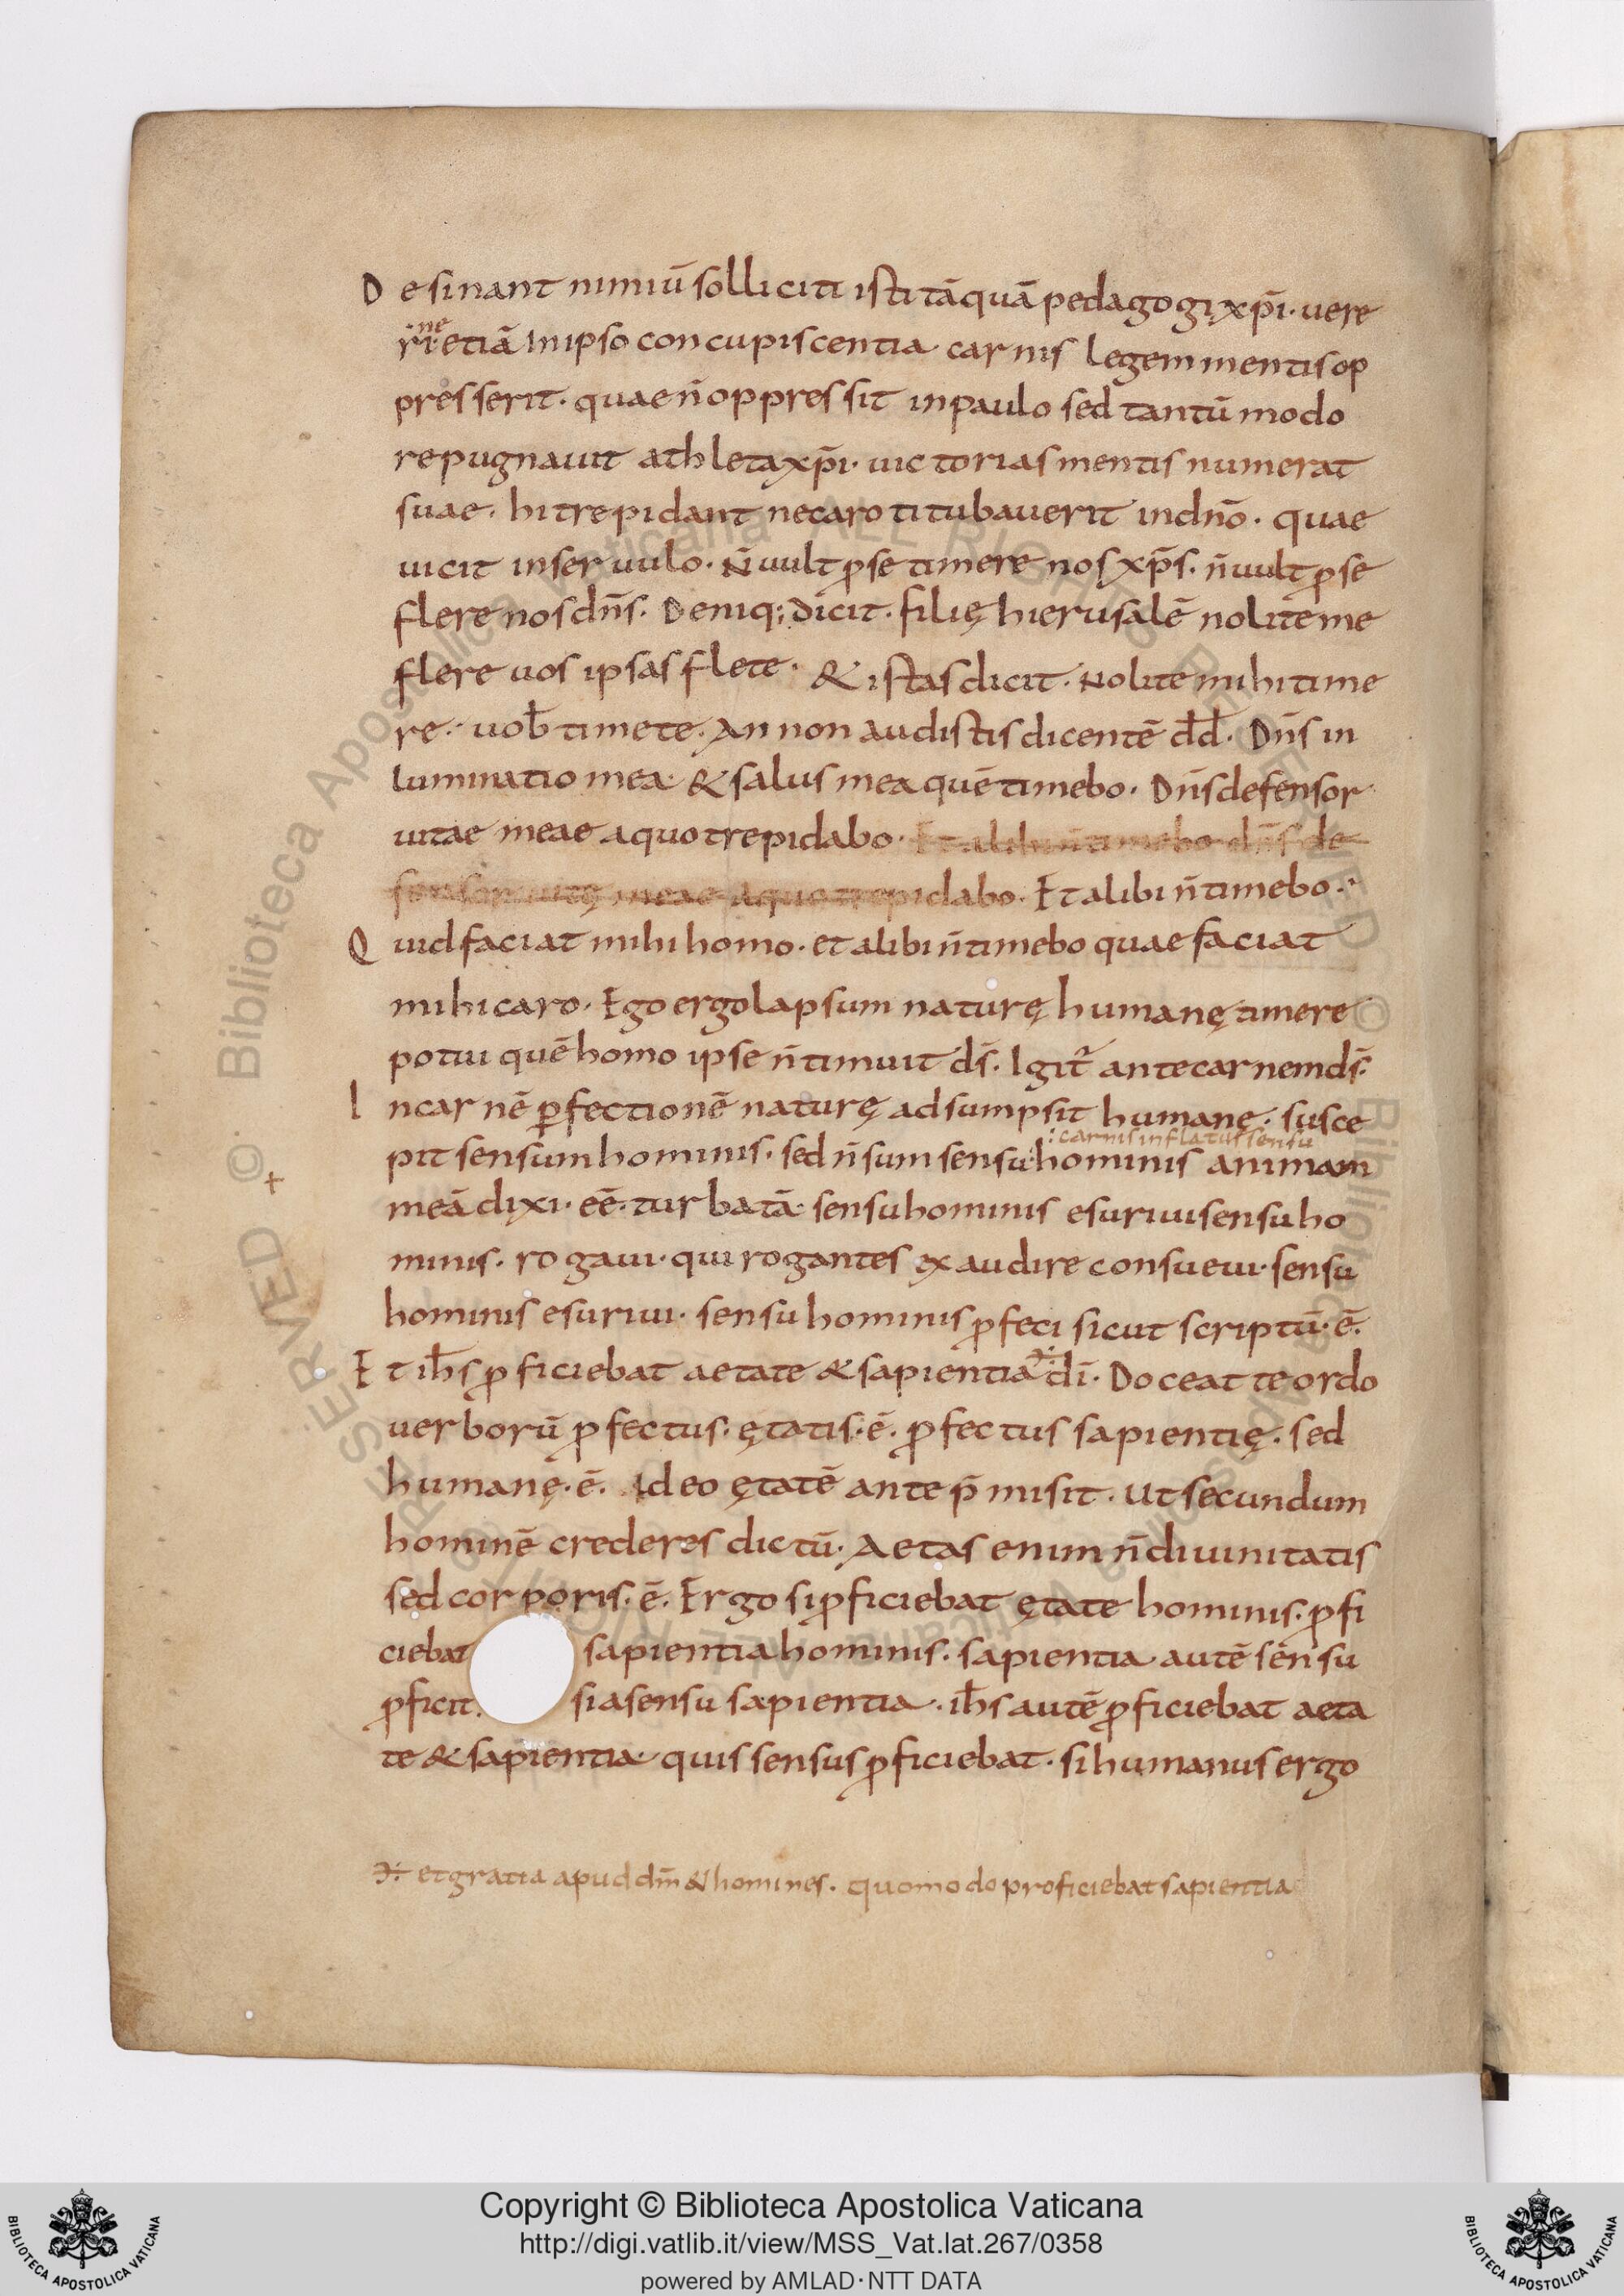 Desinant nimiū solliciti isti tāquā pedagogi xp̄i· vere
ri·ne etiā in ipso concupiscentia carnis legem mentis op
presserit· quae n̄ oppressit in paulo sed tantū modo
repugnauit athleta xp̄i· uictorias mentis numerat
suae· hi trepidant ne caro titubauerit in dn̄o· quae
uicit in seruulo· N̄ uult ꝓ se timere nos xp̄s· n̄ uult ꝓ se
flere nos dn̄s· Deniq; dicit· filię hierusalē nolite me
flere uos ipsas flete· & istas dicit· Nolite mihi time
re· uob̄ timete· An non audistis dicentē dd̄· Dn̄s in
luminatio mea & salus mea quē timebo· Dn̄s defensor
uitae meae a quo trepidabo· Et alibi n̄ timebo dn̄s de
fensor uitę meae a quo trepidabo· Et alibi n̄ timebo·
Quid faciat mihi homo· et alibi n̄ timebo quae faciat
mihi caro· Ego ergo lapsum naturę humanę timere
potui quē homo ipse n̄ timuit d̄s· Igit᷑ ante carnem d̄s·
In carnē ꝑfectionē naturę adsumpsit humanę· susce
:carnis inflatus sensu
pit sensum hominis· sed n̄ sum sensu: hominis animam
meā dixi· eē· turbatā· sensu hominis esuriui sensu ho
minis· rogaui· qui rogantes exaudire consueui· sensu
hominis esuriui· sensu hominis ꝓfeci sicut scriptū· ē·
Et ih̄s ꝓficiebat aetate & sapientia dī· Doceat te ordo
uerborū ꝓfectus· ętatis· ē· ꝓfectus sapientię· sed
humanę· ē· Ideo ętatē ante p̄misit· Ut secundum
hominē crederes dictū· Aetas enim n̄ diuinitatis
sed corporis· ē· Ergo si ꝓficiebat ętate hominis· ꝓfi
ciebat sapientia hominis· sapientia autē sensu
ꝓficit· si a sensu sapientia· ih̄s autē ꝓficiebat aeta
te & sapientia· quis sensus ꝓficiebat· si humanus ergo
et gratia apud dm̄ & homines· quomodo proficiebat sapientia
Copyright © Biblioteca Apostolica Vaticana
http://digi.vatlib.it/view/MSS_Vat.lat.267/0358
powered by AMLAD·NTT DATA
BIBLIOTECA APOSTOLICA VATICANA
BIBLIOTECA APOSTOLICA VATICANA